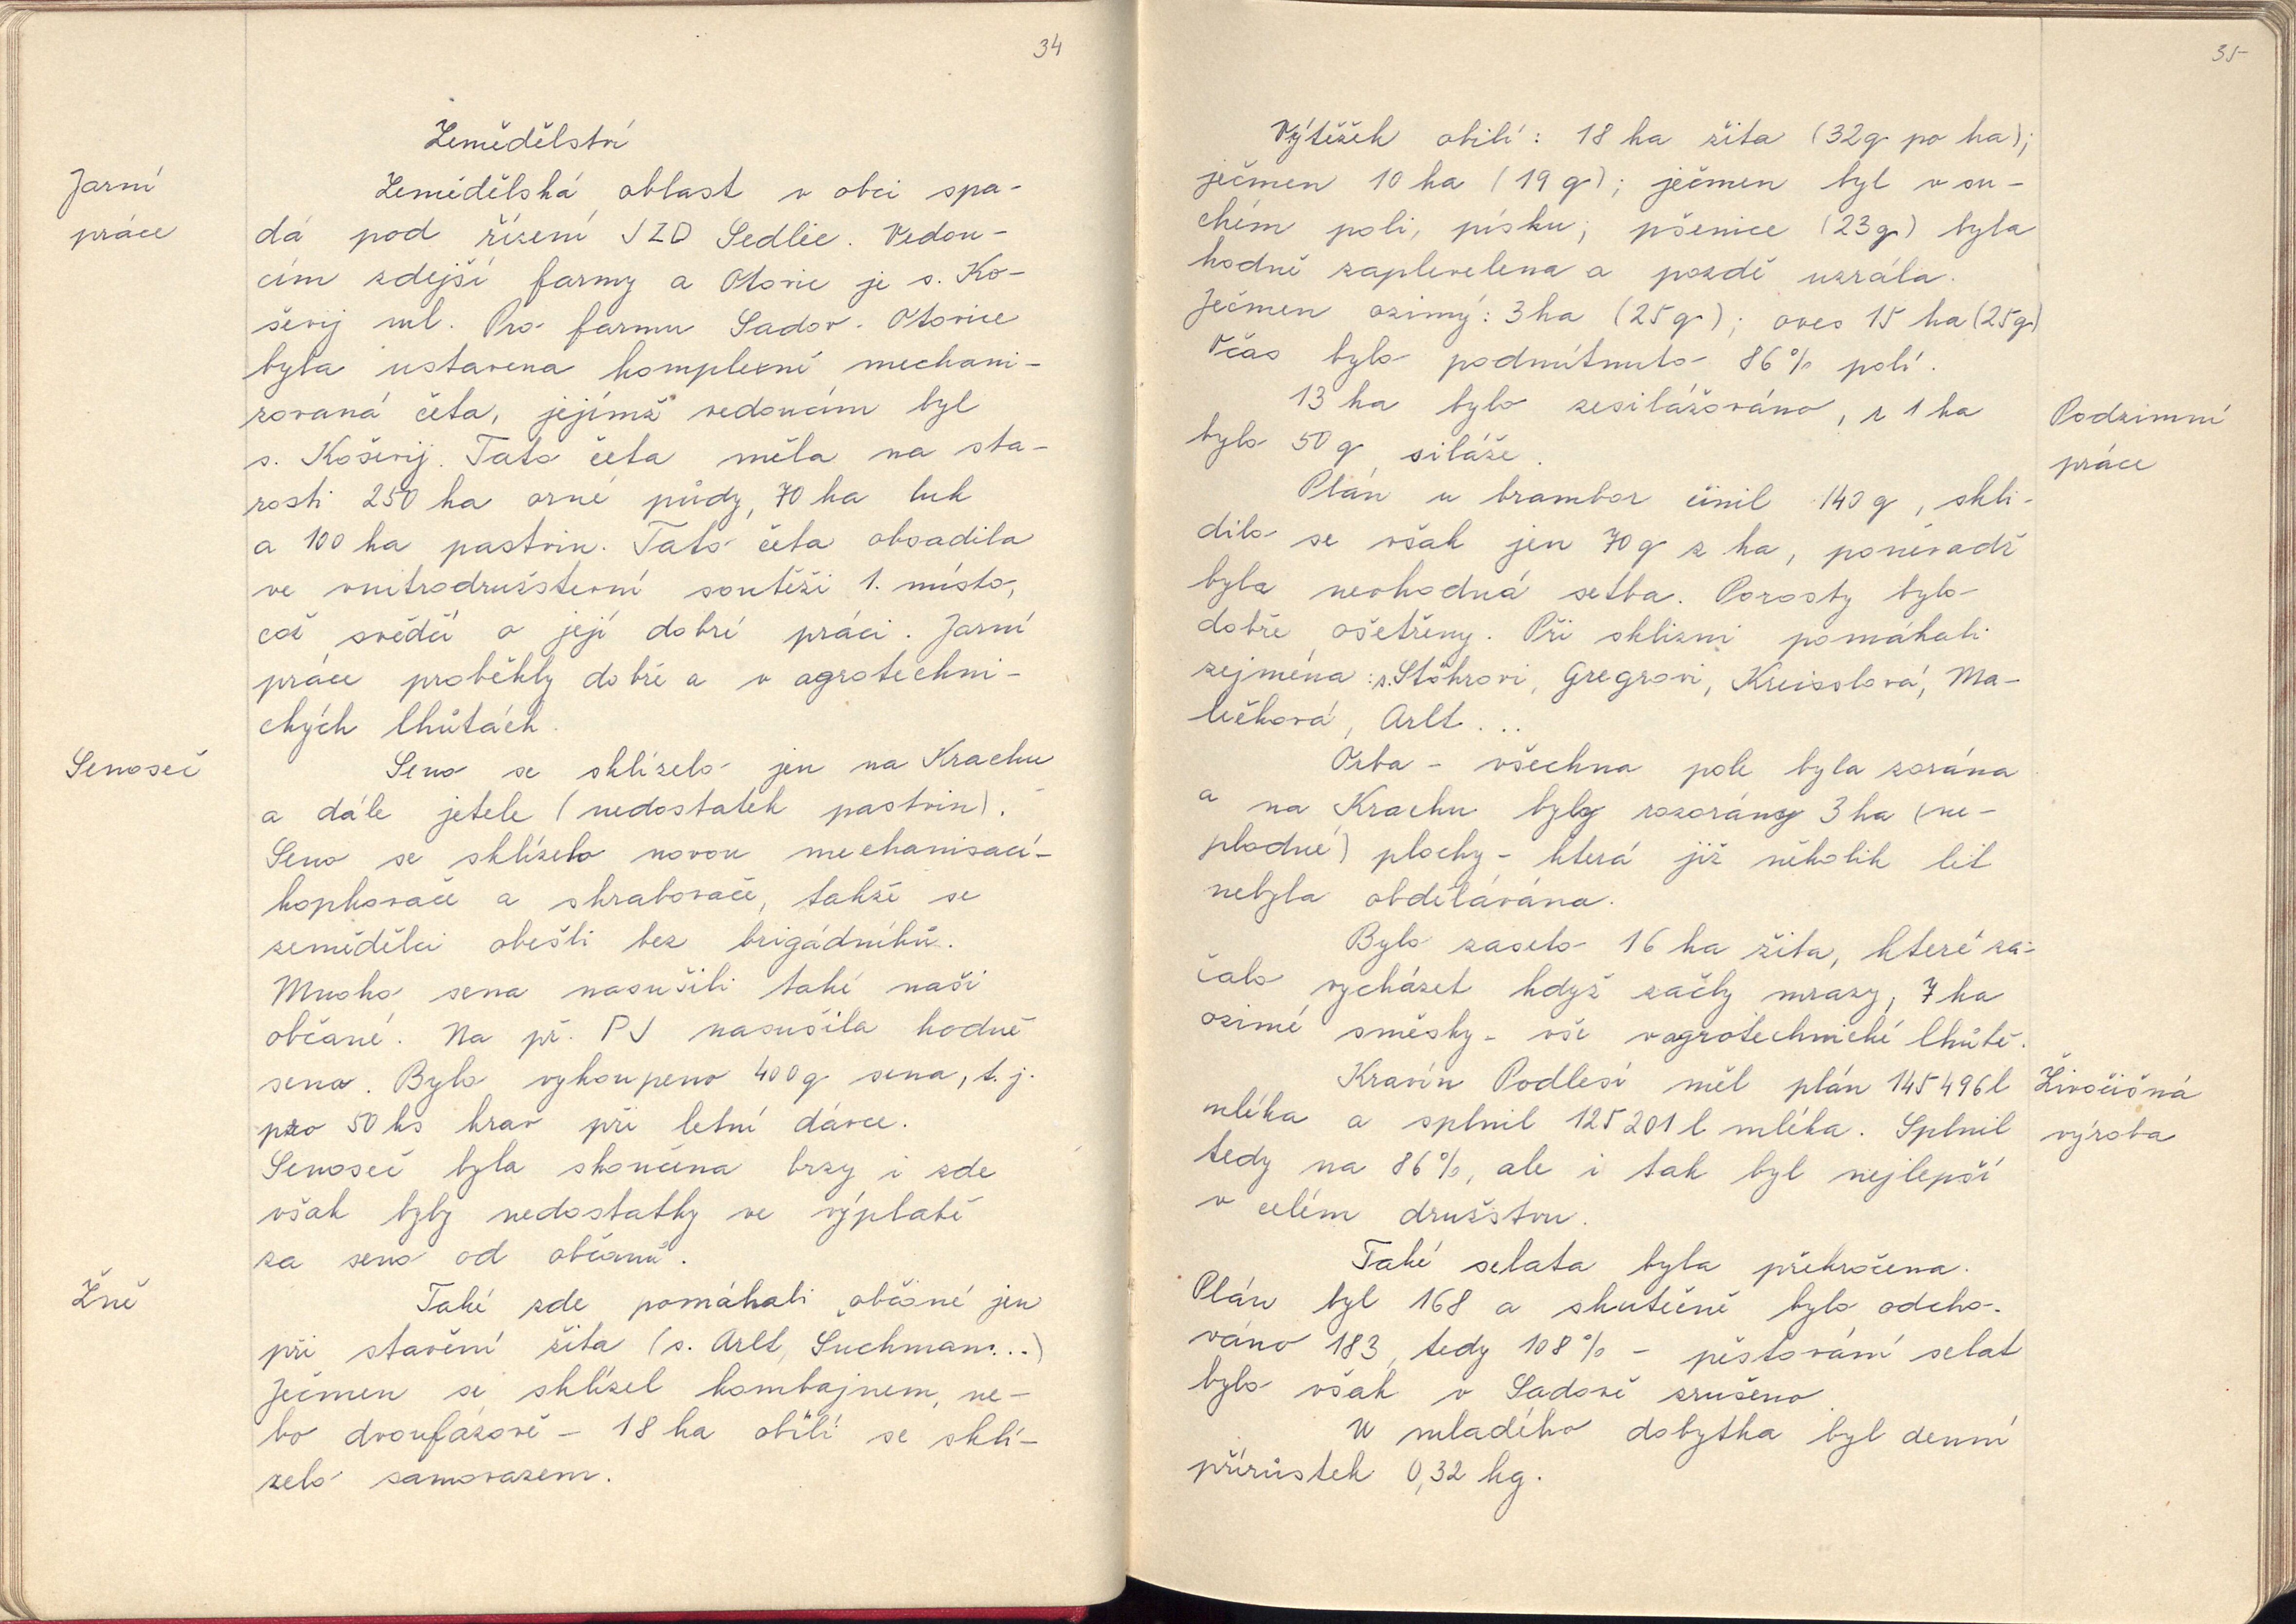 34
Zemědělství
Jarní
práce
Zemědělská oblast v obci spa-
dá pod řízení JZD Sedlec. Vedou-
cím zdejší farmy a Otovic je s. Ko-
ševij ml. Pro farmu Sadov-Otovice
byla ustavena komplexně mechani-
zovaná četa, jejímž vedoucím byl
s. Koševij. Tato četa měla na sta-
rosti 250 ha orné půdy, 70 ha luk
a 100 ha pastvin. Tato četa obsadila
ve vnitrodružstevní soutěži 1. místo,
což svědčí o její dobré práci. Jarní
práce proběhly dobře a v agrotechni-
ckých lhůtách.
Senoseč
Seno se sklízelo jen na Krachu
a dále jetele (nedostatek pastvin).
Seno se sklízelo novou mechanisací-
kopkovače a shrabovače, takže se
zemědělci obešli bez brigádníků.
Mnoho sena nasušili také naši
občané. Na př. PJ nasušila hodně
sena. Bylo vykoupeno 400 q sena, t.j.
pro 50 ks krav při letní dávce.
Senoseč byla skončena brzy i zde
však byly nedostatky ve výplatě
za seno od občanů.
Žně
Také zde pomáhali občané jen
při stavění žita (s. Arlt, Šuchman...)
Ječmen se sklízel kombajnem, ne-
bo dvoufázově - 18 ha obilí se sklí-
zelo samovazem.
35
Výtěžek obilí: 18 ha žita (32q po ha);
ječmen 10 ha (19 q); ječmen byl v su-
chém poli, písku; pšenice (23q) byla
hodně zaplevelena a pozdě uzrála.
Ječmen ozimý: 3 ha (25q); oves 15 ha (25q)
Včas bylo podmítnuto 86% polí.
13 ha bylo zesilážováno, z 1 ha
bylo 50 q siláže.
Podzimní
práce
Plán u brambor činil 140 q, skli-
dilo se však jen 70 q z ha, poněvadž
byla nevhodná setba. Porosty bylo
dobře ošetřeny. Při sklizni pomáhali
zejména: s. Stöhrovi, Gregrovi, Kreisslová, Ma-
lečková, Arlt...
Orba - všechna pole byla zorána
a na Krachu byly rozorány 3 ha (ne-
plodné) plochy - která již několik let
nebyla obdělávána.
Bylo zaseto 16 ha žita, které za-
čalo vycházet když začly mrazy, 7 ha
ozimé směsky - vše v agrotechnické lhůtě.
Kravín Podlesí měl plán 145 496 l
mléka a splnil 125 201 l mléka. Splnil
tedy na 86%, ale i tak byl nejlepší
v celém družstvu.
Živočišná
výroba
Také selata byla překročena.
Plán byl 168 a skutečně bylo odcho-
váno 183, tedy 108% - pěstování selat
bylo však v Sadově zrušeno.
U mladého dobytka byl denní
přírůstek 0,32 kg.